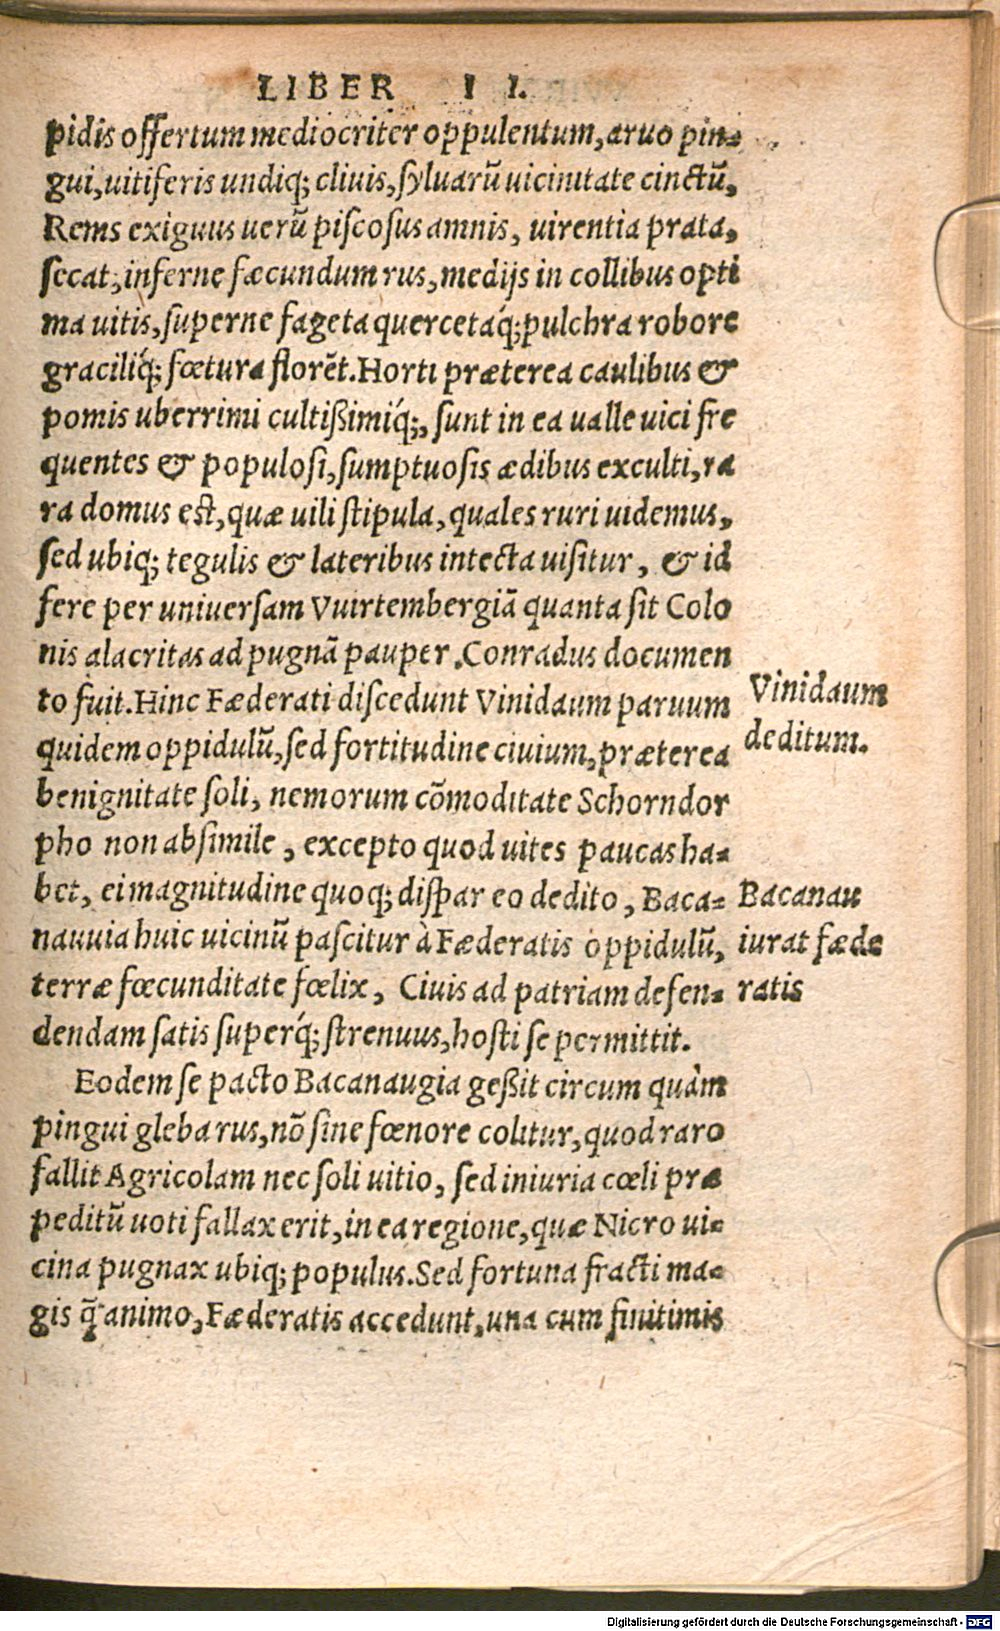 LIBER II.
pidis offertum mediocriter oppulentum, aruo pin-
gui, uitiferis undiq; cliuis, syluarũ uicinitate cinctũ,
Rems exiguus uerũ piscosus amnis, uirentia prata,
secat, inferne fæcundum rus, medijs in collibus opti
ma uitis, superne fageta quercetaq́; pulchra robore
graciliq́; fœtura florẽt. Horti præterea caulibus &
pomis uberrimi cultißimiq́;, sunt in ea ualle uici fre
quentes & populosi, sumptuosis ædibus exculti, ra
ra domus est, quæ uili stipula, quales ruri uidemus,
sed ubiq; tegulis & lateribus intecta uisitur, & id
fere per uniuersam Vuirtembergiã quanta sit Colo
nis alacritas ad pugnã pauper. Conradus documen
to fuit. Hinc Fæderati discedunt Vinidaum paruum
quidem oppidulũ, sed fortitudine ciuium, præterea
benignitate soli, nemorum cõmoditate Schorndor
pho non absimile, excepto quod uites paucas ha-
bet, ei magnitudine quoq; dispar eo dedito, Baca-
nauuia huic uicinũ pascitur à Fæderatis oppidulũ,
terræ fœcunditate fœlix, Ciuis ad patriam defen-
dendam satis superq́; strenuus, hosti se permittit.
Eodem se pacto Bacanaugia geßit circum quàm
pingui gleba rus, nõ sine fœnore colitur, quod raro
fallit Agricolam nec soli uitio, sed iniuria cœli præ
peditũ uoti fallax erit, in ea regione, quæ Nicro ui-
cina pugnax ubiq; populus. Sed fortuna fracti ma-
gis q̃ animo, Fæderatis accedunt, una cum finitimis
Vinidaum
deditum.
Bacanau
iurat fæde
ratis
Digitalisierung gefördert durch die Deutsche Forschungsgemeinschaft - DFG